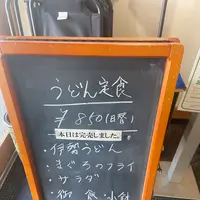 うどん定食
¥850(日替)
本日は完売しました。
・伊勢うどん
・まぐろのフライ
・サラダ
・御食・小鉢